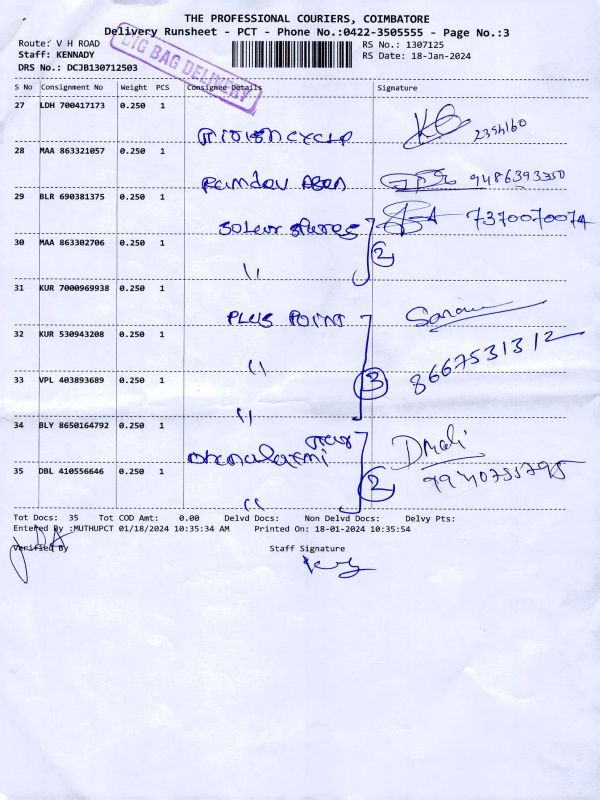 THE PROFESSIONAL COURIERS, COIMBATORE
Delivery Runsheet - PCT - Phone No.:0422-3505555 - Page No.:3
Route: V H ROAD RS No.: 1307125
Staff: KENNADY RS Date: 18-Jan-2024
DRS No.: DCJB130712503
BIG BAG DELIVERY
S No Consignment No Weight PCS Consignee Details Signature
27 LDH 700417173 0.250 1
28 MAA 863321057 0.250 1
9486393350
29 BLR 690381375 0.250 1
7370070074
30 MAA 863302706 0.250 1
〃 2
31 KUR 7000969938 0.250 1
PLUS POINT
32 KUR 530943208 0.250 1
〃 8667531312
33 VPL 403893689 0.250 1
〃 3
34 BLY 8650164792 0.250 1
Dhanalaxmi
35 DBL 410556646 0.250 1
〃 2
Tot Docs: 35 Tot COD Amt: 0.00 Delvd Docs: Non Delvd Docs: Delvy Pts:
Entered By :MUTHUPCT 01/18/2024 10:35:34 AM Printed On: 18-01-2024 10:35:54
Verified By Staff Signature